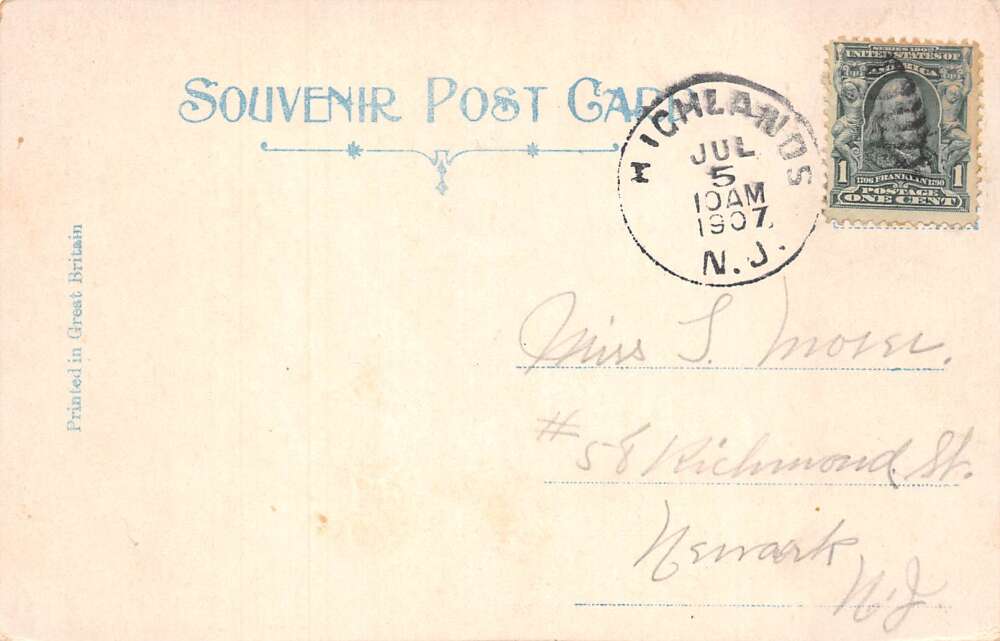 SOUVENIR POST CARD
HIGHLANDS
JUL
5
10AM
1907
N.J.
SERIES 1902
UNITED STATES OF
AMERICA
1 1706 FRANKLIN 1790 1
POSTAGE
ONE CENT
Printed in Great Britain
Miss S.
# 58 Richmond St.
Newark
N.J.